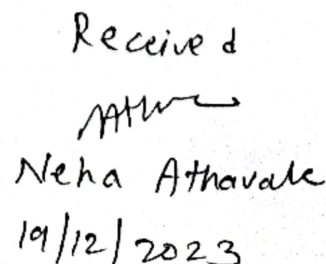 Received
Neha Athavale
19/12/2023